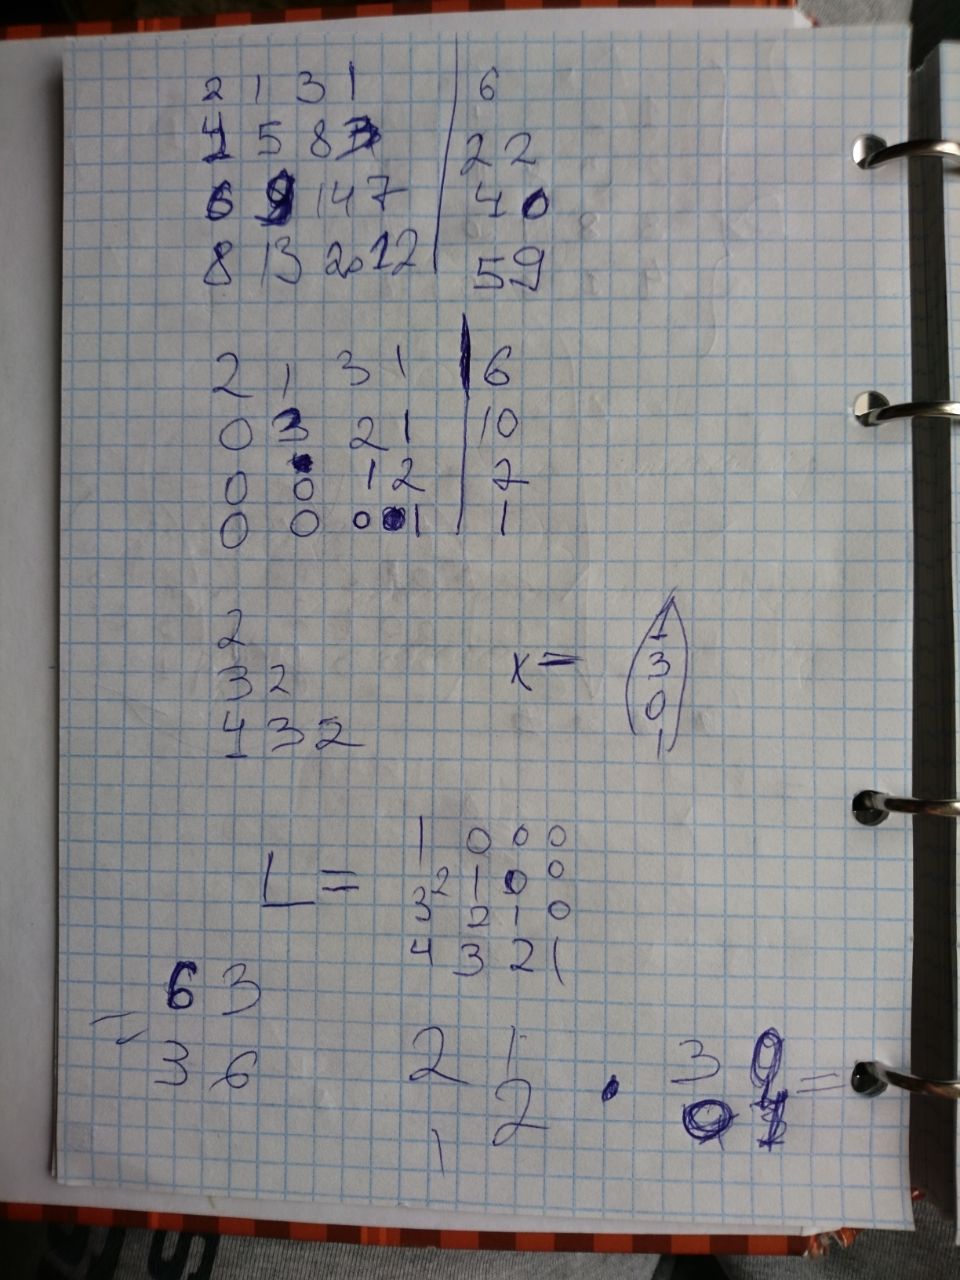 2 1 3 1 | 6
4 5 8 3 | 22
6 9 14 7 | 40
8 13 20 12 | 59
2 1 3 1 | 6
0 3 2 1 | 10
0 0 1 2 | 7
0 0 0 1 | 1
2
3 2
4 3 2
x = (1 3 0 1)
L =
1 0 0 0
2 1 0 0
3 2 1 0
4 3 2 1
= 6 3
3 6
2 1
1 2
·
3 0
0 3
=